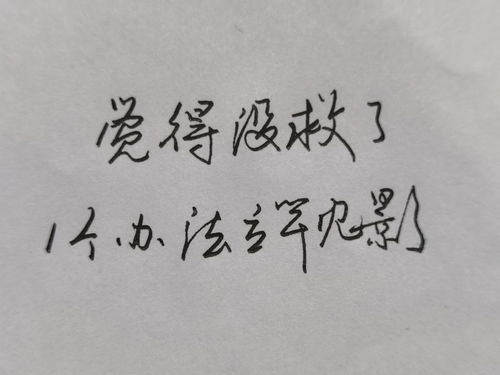 觉得没救了
1个办法立竿见影